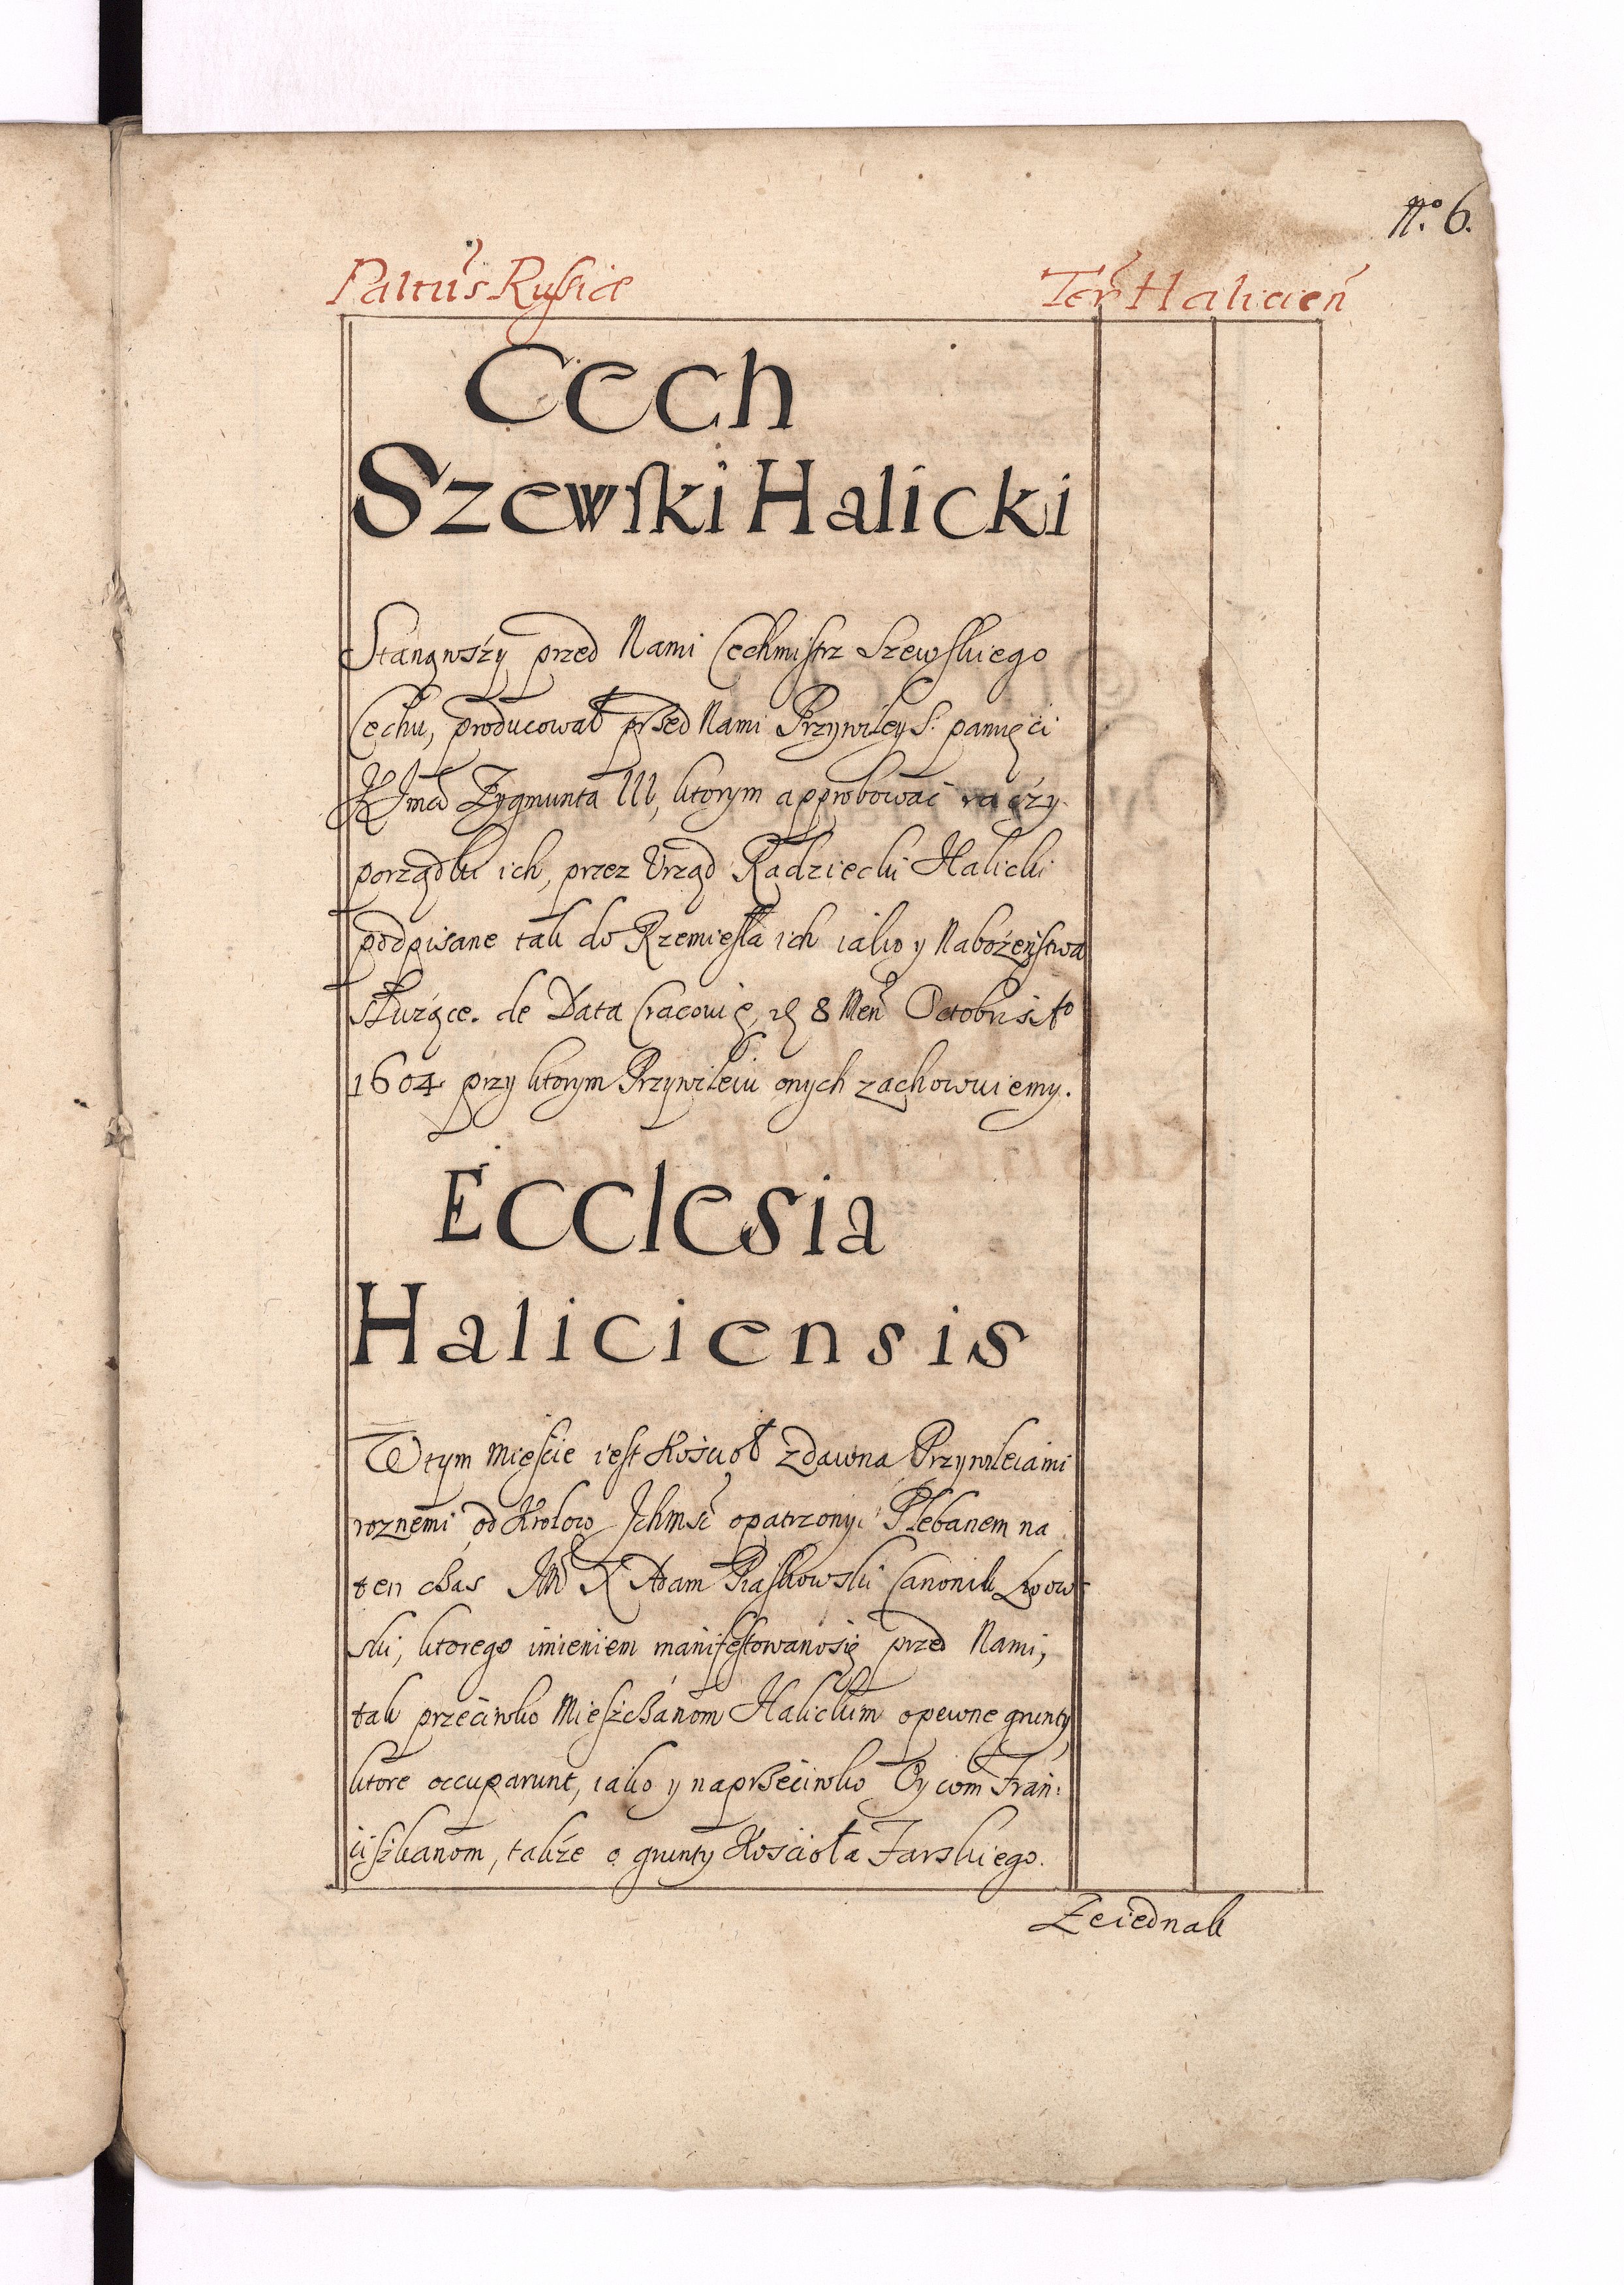 N.º 6.
Paltũs Russiæ
Ter̃ Halicień
Cech
Szewski Halicki
Stanąwszy przed Nami Cechmistrz Szewskiego
Cechu, producował przed Nami Przywiley S. pamięci
K Jmci Zygmunta III, ktorym approbować raczy
porządki ich, przez Vrząd Radziecki Halicki
podpisane tak do Rzemiesła ich iako y Nabożeństwa
służące. de Data Cracouię, 8 Men Octobris Aº
1604 przy ktorym Przywileiu onych zachowuiemy.
Ecclesia
Haliciensis
W tym Mieście iest Kościoł zdawna Przywileiami
roznemi od Krolow Ichmść opatrzony: Plebanem na
ten czas JM X Adam Piaskowski Canonik Lwow
ski, ktorego imieniem manifestowanosię przed Nami,
tak przeciwko Mieszczanom Halickim opewne grunty
ktore occuparunt, iako y naprzeciwko Oycom Fran:
ciszkanom, także o grunty Kościoła Farskiego.
Zeiednak